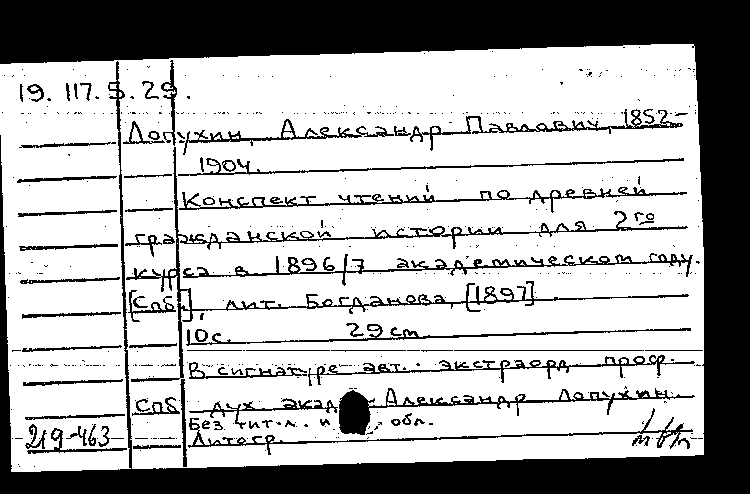 19. 117. 5. 29.
Лопухин, Александр Павлович, 1852-
1904.
Конспект чтений по древней
гражданской истории для 2го
курса в 1896/7 академическом году.
[Спб.], лит. Богданова, [1897].
10с. 29cm
В сигнатуре авт.: экстраорд. проф.
Спб дух. акад. Александр Лопухин.
Без тит. л. и обл.
Литогр.
219-463